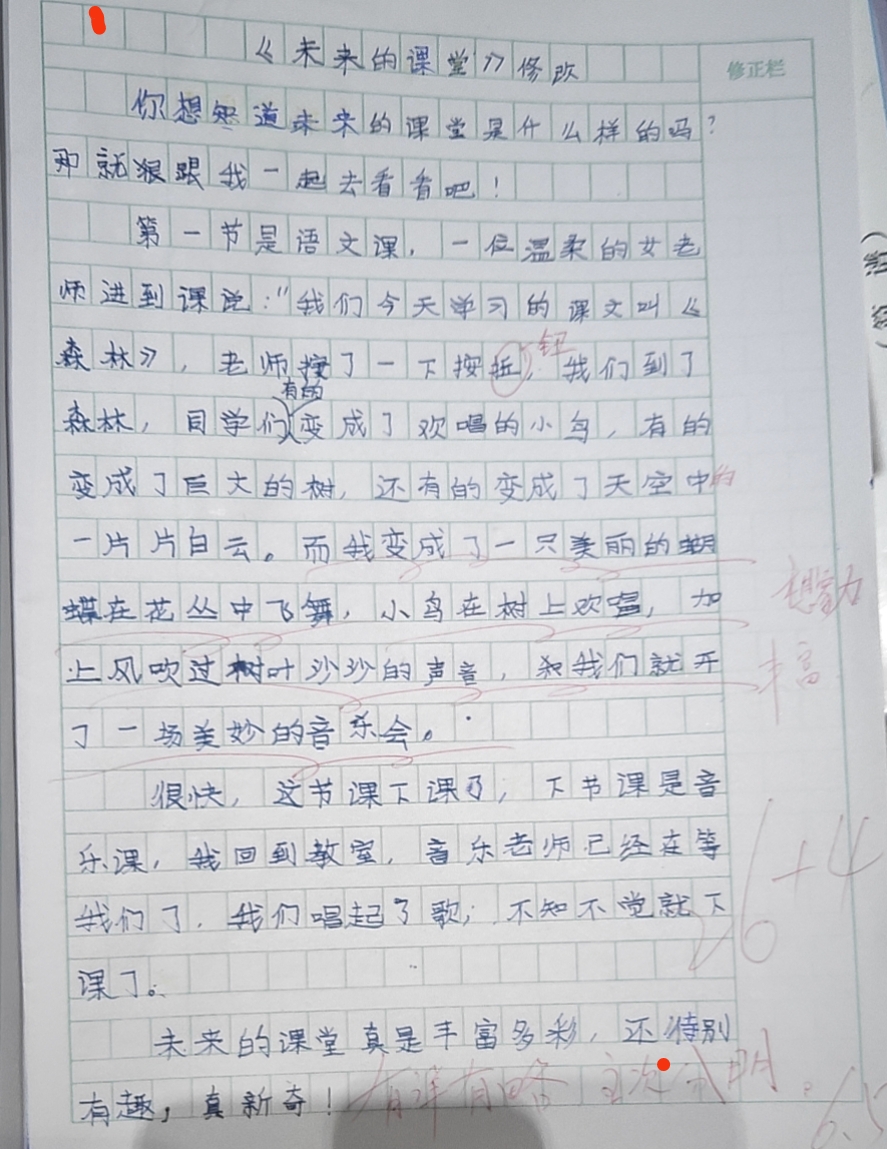 《未来的课堂》修改
修正栏
你想知道未来的课堂是什么样的吗?
那就狠跟我一起去看看吧!
第一节是语文课,一位温柔的女老
师进到课说:"我们今天学习的课文叫《
森林》,老师按了一下按扭,我们到了
钮
有的
森林,同学们变成了欢唱的小鸟,有的
变成了巨大的树,还有的变成了天空中的
一片片白云。而我变成了一只美丽的蝴
蝶在花丛中飞舞,小鸟在树上欢唱,加
想象力
上风吹过树叶沙沙的声音,和我们就开
丰富
了一场美妙的音乐会。
很快,这节课下课了,下节课是音
乐课,我回到教室,音乐老师已经在等
26+4
我们了,我们唱起了歌,不知不觉就下
课了。
未来的课堂真是丰富多彩,还特别
有趣,真新奇!
有详有略 主次分明。
6.5